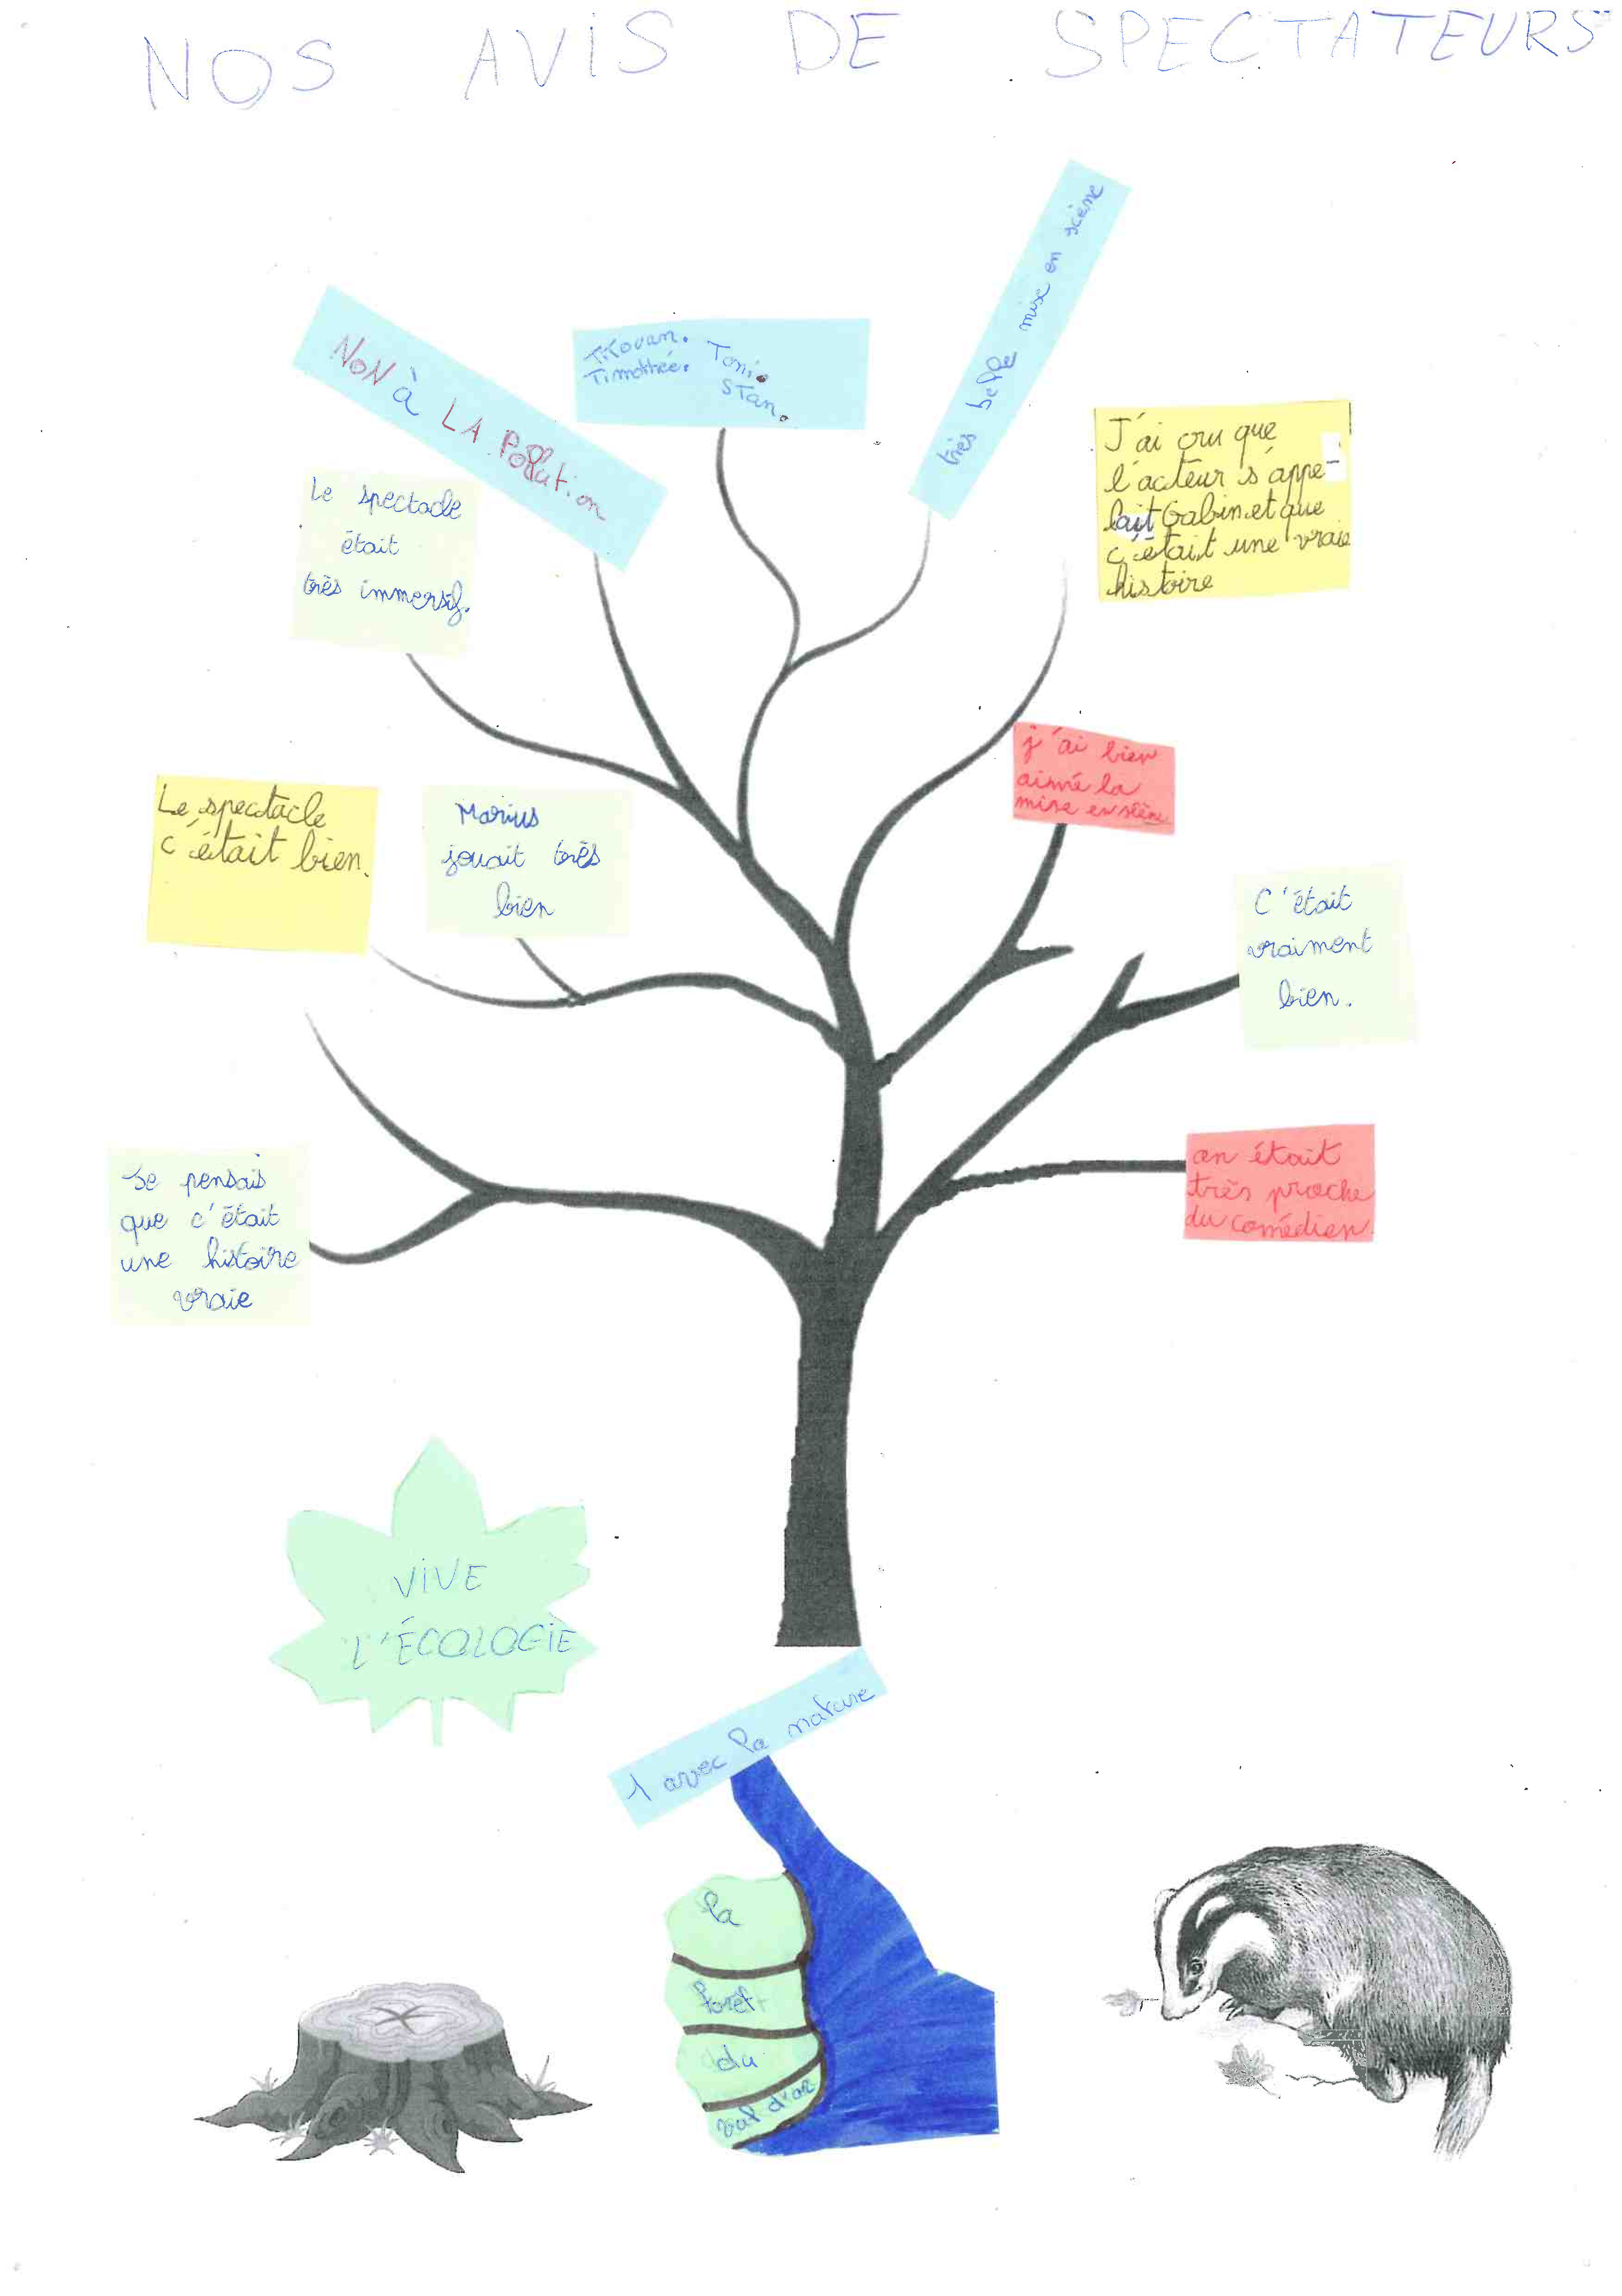 NOS AVIS DE SPECTATEURS
très belle mise en scène
NON à LA Pollution
Titouan. Toni.
Timothée. Stan.
J'ai cru que
l'acteur s'appe-
lait Gabin et que
c'était une vraie
histoire
Le spectacle
était
très immersif.
j'ai bien
aimé la
mise en scène
Le spectacle
c'était bien.
Marius
jouait très
bien
C'était
vraiment
bien.
on était
très proche
du comédien.
Je pensais
que c'était
une histoire
vraie
VIVE
L'ÉCOLOGIE
1 avec la nature
la
forêt
du
val d'or